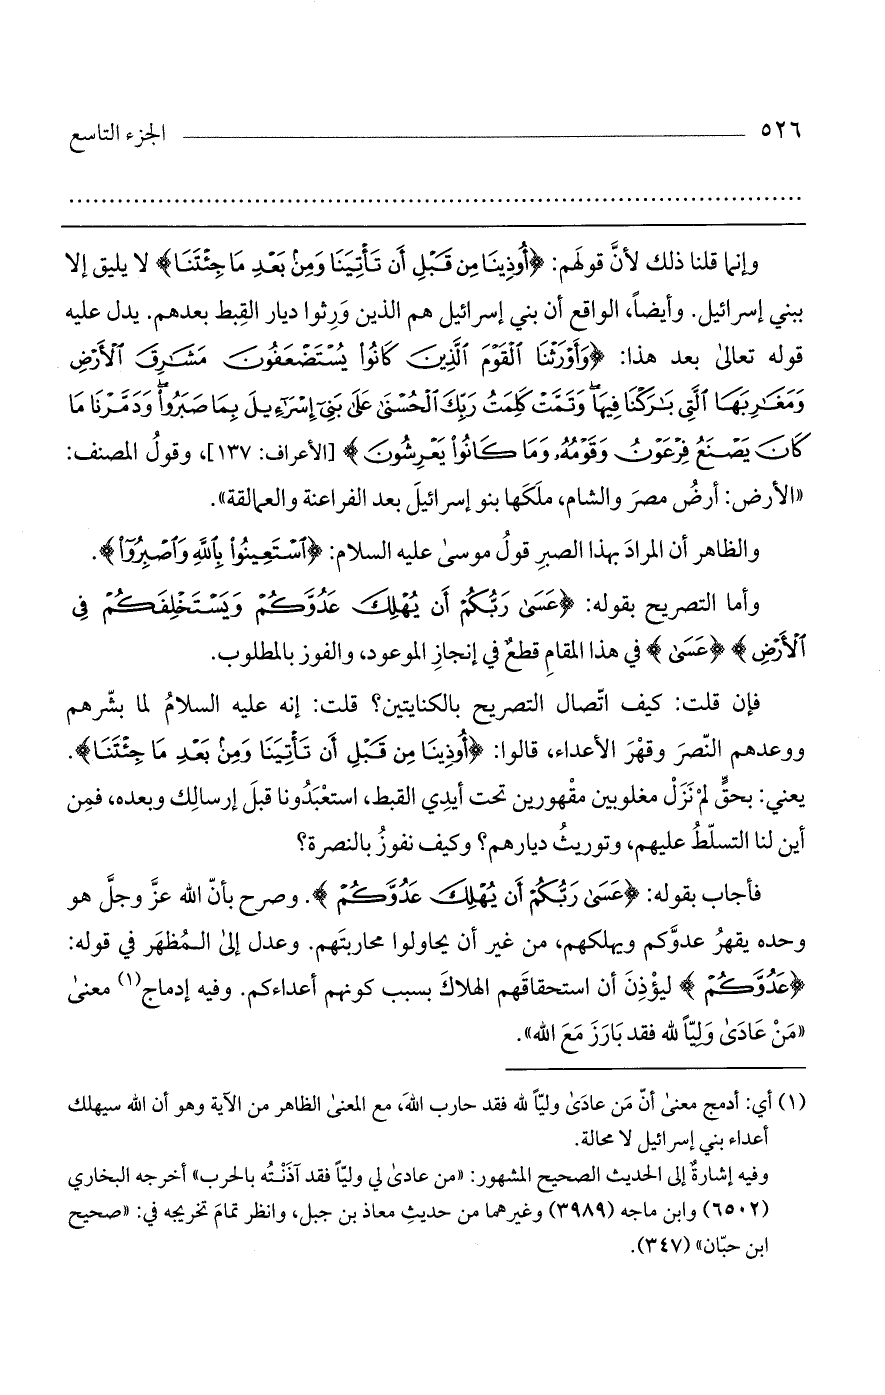 ٥٢٦ الجزء التاسع
وإنما قلنا ذلك لأنَّ قولَهم: ﴿أُوذِينَا مِن قَبْلِ أَن تَأْتِيَنَا وَمِنۢ بَعْدِ مَا جِئْتَنَا﴾ لا يليق إلا
ببني إسرائيل. وأيضاً، الواقع أن بني إسرائيل هم الذين وَرِثوا ديار القِبط بعدهم. يدل عليه
قوله تعالىٰ بعد هذا: ﴿وَأَوْرَثْنَا ٱلْقَوْمَ ٱلَّذِينَ كَانُوا۟ يُسْتَضْعَفُونَ مَشَٰرِقَ ٱلْأَرْضِ
وَمَغَٰرِبَهَا ٱلَّتِى بَٰرَكْنَا فِيهَا ۖ وَتَمَّتْ كَلِمَتُ رَبِّكَ ٱلْحُسْنَىٰ عَلَىٰ بَنِىٓ إِسْرَٰٓءِيلَ بِمَا صَبَرُوا۟ ۖ وَدَمَّرْنَا مَا
كَانَ يَصْنَعُ فِرْعَوْنُ وَقَوْمُهُۥ وَمَا كَانُوا۟ يَعْرِشُونَ﴾ [الأعراف: ١٣٧]، وقولُ المصنف:
«الأرض: أرضُ مصرَ والشام، ملَكَها بنو إسرائيلَ بعد الفراعنة والعمالقة».
والظاهر أن المرادَ بهذا الصبرِ قولُ موسىٰ عليه السلام: ﴿ٱسْتَعِينُوا۟ بِٱللَّهِ وَٱصْبِرُوٓا۟﴾.
وأما التصريح بقوله: ﴿عَسَىٰ رَبُّكُمْ أَن يُهْلِكَ عَدُوَّكُمْ وَيَسْتَخْلِفَكُمْ فِى
ٱلْأَرْضِ﴾ ﴿عَسَىٰ﴾ في هذا المقامِ قطعٌ في إنجازِ الموعود، والفوز بالمطلوب.
فإن قلت: كيف اتّصال التصريح بالكنايتين؟ قلت: إنه عليه السلامُ لما بشّرهم
ووعدهم النّصرَ وقهْرَ الأعداء، قالوا: ﴿أُوذِينَا مِن قَبْلِ أَن تَأْتِيَنَا وَمِنۢ بَعْدِ مَا جِئْتَنَا﴾.
يعني: بحقٍّ لمْ نَزَلْ مغلوبين مقْهورين تحت أيدِي القبط، استعْبَدُونا قبلَ إرسالِك وبعده، فمِن
أين لنا التسلّطُ عليهم، وتوريثُ ديارهم؟ وكيف نفوزُ بالنصرة؟
فأجاب بقوله: ﴿عَسَىٰ رَبُّكُمْ أَن يُهْلِكَ عَدُوَّكُمْ﴾. وصرح بأنّ الله عزَّ وجلَّ هو
وحده يقهرُ عدوَّكم ويهلكهم، من غير أن يحاولوا محاربتَهم. وعدل إلىٰ الـمُظهَر في قوله:
﴿عَدُوَّكُمْ﴾ ليؤْذِنَ أن استحقاقَهم الهلاكَ بسبب كونهم أعداءكم. وفيه إدماج(١) معنىٰ
«مَنْ عَادَىٰ وَلِيّاً لله فقد بَارَزَ مَعَ الله».
(١) أي: أدمج معنىٰ أنّ مَن عادَىٰ وليّاً لله فقد حارب اللهَ، مع المعنىٰ الظاهر من الآية وهو أن الله سيهلك
أعداء بني إسرائيل لا محالة.
وفيه إشارةٌ إلىٰ الحديث الصحيح المشهور: «من عادىٰ لي وليّاً فقد آذَنْتُه بالحرب» أخرجه البخاري
(٦٥٠٢) وابن ماجه (٣٩٨٩) وغيرهما من حديثِ معاذ بن جبل، وانظر تمامَ تخريجه في: «صحيح
ابن حبّان» (٣٤٧).